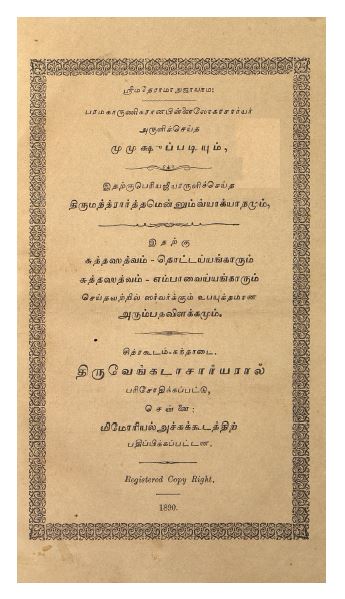 ஸ்ரீமதேராமாநுஜாயநம:
பரமகாருணிகரானபிள்ளைலோகாசார்யர்
அருளிச்செய்த
முமுக்ஷுப்படியும்,
இதற்குபெரியஜீயரருளிச்செய்த
திருமந்த்ரார்த்தமென்னும்வ்யாக்யாநமும்,
இதற்கு
சுத்தஸத்வம் - தொட்டய்யங்காரும்
சுத்தஸத்வம் - எம்பாவைய்யங்காரும்
செய்தவற்றில் ஸர்வர்க்கும் உபயுக்தமான
அரும்பதவிளக்கமும்.
சித்ரகூடம்-கந்தாடை.
திருவேங்கடாசார்யரால்
பரிசோதிக்கப்பட்டு,
சென்னை:
மிமோரியல்அச்சுக்கூடத்திற்
பதிப்பிக்கப்பட்டன.
Registered Copy Right.
1890.